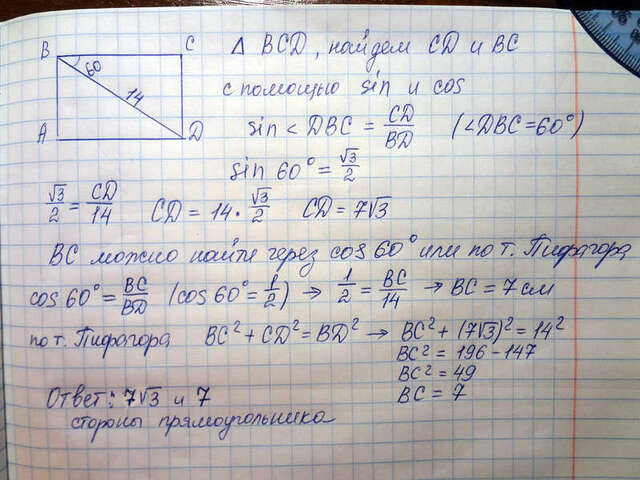 B C Δ BCD, найдем CD и BC
60
14
с помощью sin и cos
A D sin < DBC = CD/BD (∠DBC = 60°)
sin 60° = √3/2
√3/2 = CD/14 CD = 14 · √3/2 CD = 7√3
BC можно найти через cos 60° или по т. Пифагора
cos 60° = BC/BD (cos 60° = 1/2) → 1/2 = BC/14 → BC = 7 см
по т. Пифагора BC² + CD² = BD² → BC² + (7√3)² = 14²
BC² = 196 - 147
BC² = 49
BC = 7
Ответ: 7√3 и 7
стороны прямоугольника